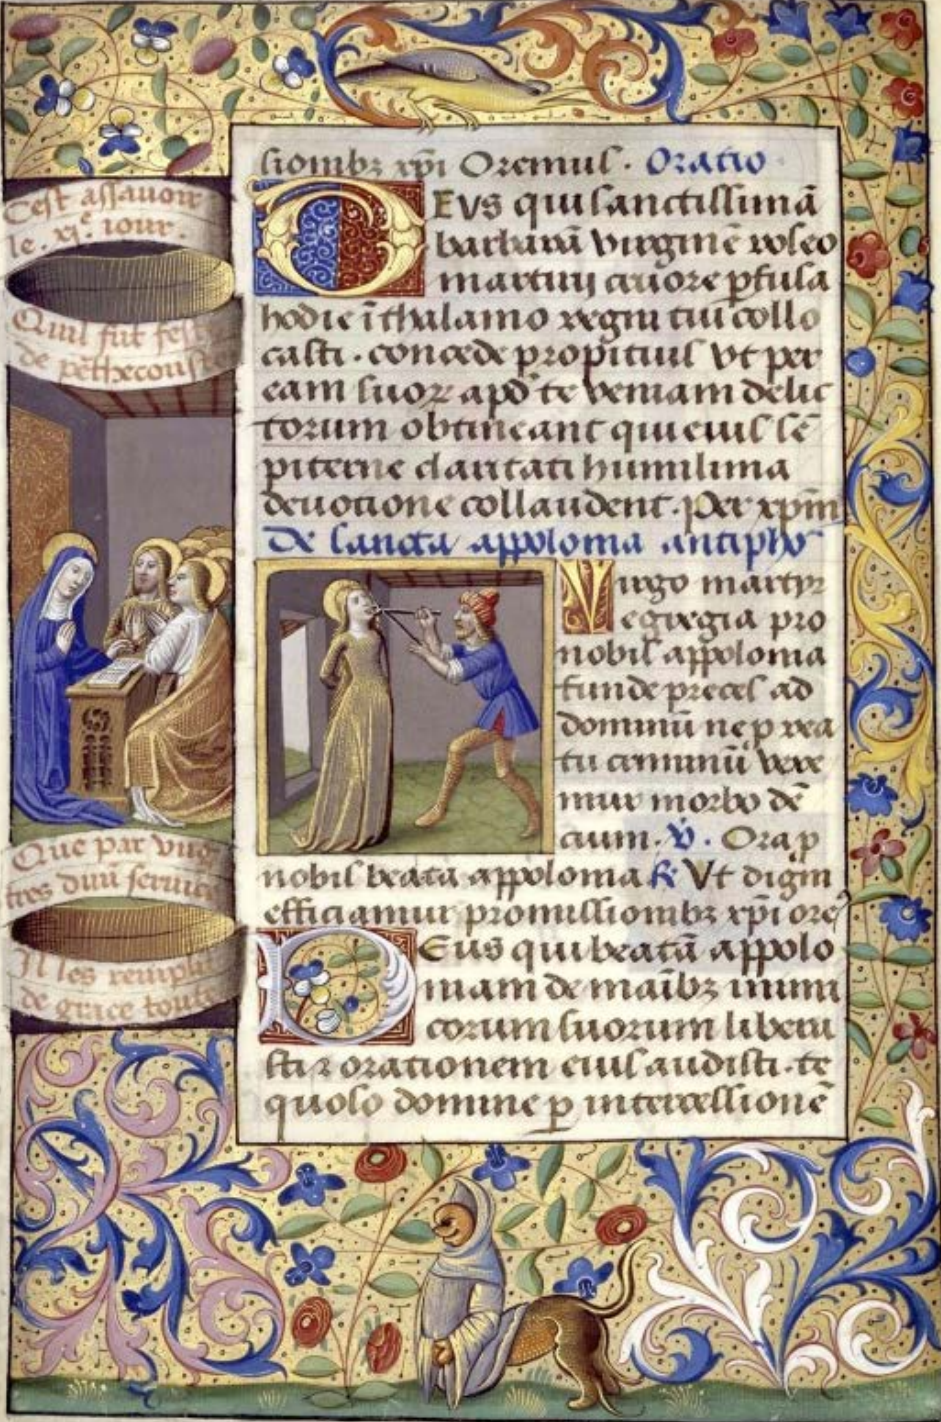 C'est assavoir
le .xi.e iour.
Qu'il fut feste
de pethecouste
Que par vug
tres diuin seruice
Il les remplit
de grace toute
sionibꝫ xp̄i Oremus · Oratio
DEVS qui sanctissimā
barbarā virginē roseo
martirij cruore ꝑfusā
hodie ī thalamo regni tui collo
casti · concede propitius vt per
eam suoꝝ apđ te veniam delic
torum obtineant qui eius sē
piterne claritati humilima
deuotione collaudent · Per xpm̄
De sancta appolonia antipho
Virgo martyr
egregia pro
nobis appolonia
funde preces ad
dominū ne ꝑ rea
tu criminū vexe
mur morbo dē
cium · V̄. Ora ꝑ
nobis beata appolonia R̄ Vt digni
efficiamur promissionibꝫ xp̄i ore
Deus qui beatā appolo
niam de maībꝫ inimi
corum suorum libera
sti ⁊ orationem eius audisti · te
queso domine ꝑ intercessionē